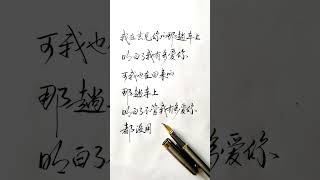 我在去见你的那趟车上
明白了我有多爱你
可我也在回来的
那趟车上
明白了不管我有多爱你
都没用
可我也
那趟
明白了
多爱你